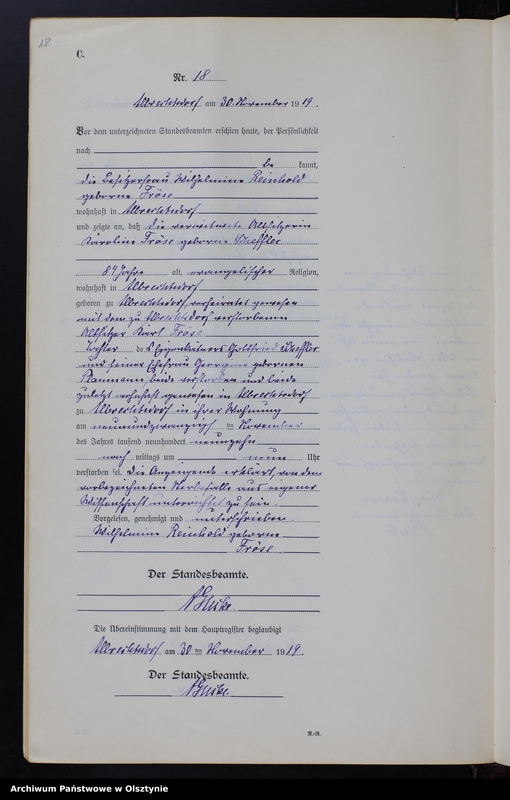 18
C.
Nr. 18
Albrechtsdorf am 30. November 1919.
Vor dem unterzeichneten Standesbeamten erschien heute, der Persönlichkeit
nach
be kannt,
die Besitzerfrau Wilhelmine Reinhold
geborne Fröse
wohnhaft in Albrechtsdorf
und zeigte an, daß die verwitwete Altsitzerin
Karoline Fröse geborne
84 Jahre alt, evangelischer Religion,
wohnhaft in Albrechtsdorf
geboren zu Albrechtsdorf, verheiratet gewesen
mit dem zu Albrechtsdorf verstorbenen
Altsitzer Karl Fröse
Tochter des Eigenkätners Gottfried
und seiner Ehefrau geborenen
beide verstorben und beide
zuletzt wohnhaft gewesen in Albrechtsdorf
zu Albrechtsdorf in ihrer Wohnung
am neunundzwanzigsten November
des Jahres tausend neunhundert neunzehn
nach mittags um neun Uhr
verstorben sei. Die Anzeigende erklärt, von dem
vorbezeichneten Sterbefalle aus eigener
Wissenschaft unterrichtet zu sein.
Vorgelesen, genehmigt und unterschrieben.
Wilhelmine Reinhold geborne
Fröse
Der Standesbeamte.
Die Übereinstimmung mit dem Hauptregister beglaubigt
Albrechtsdorf am 30 ten November 1919.
Der Standesbeamte.
Archiwum Państwowe w Olsztynie